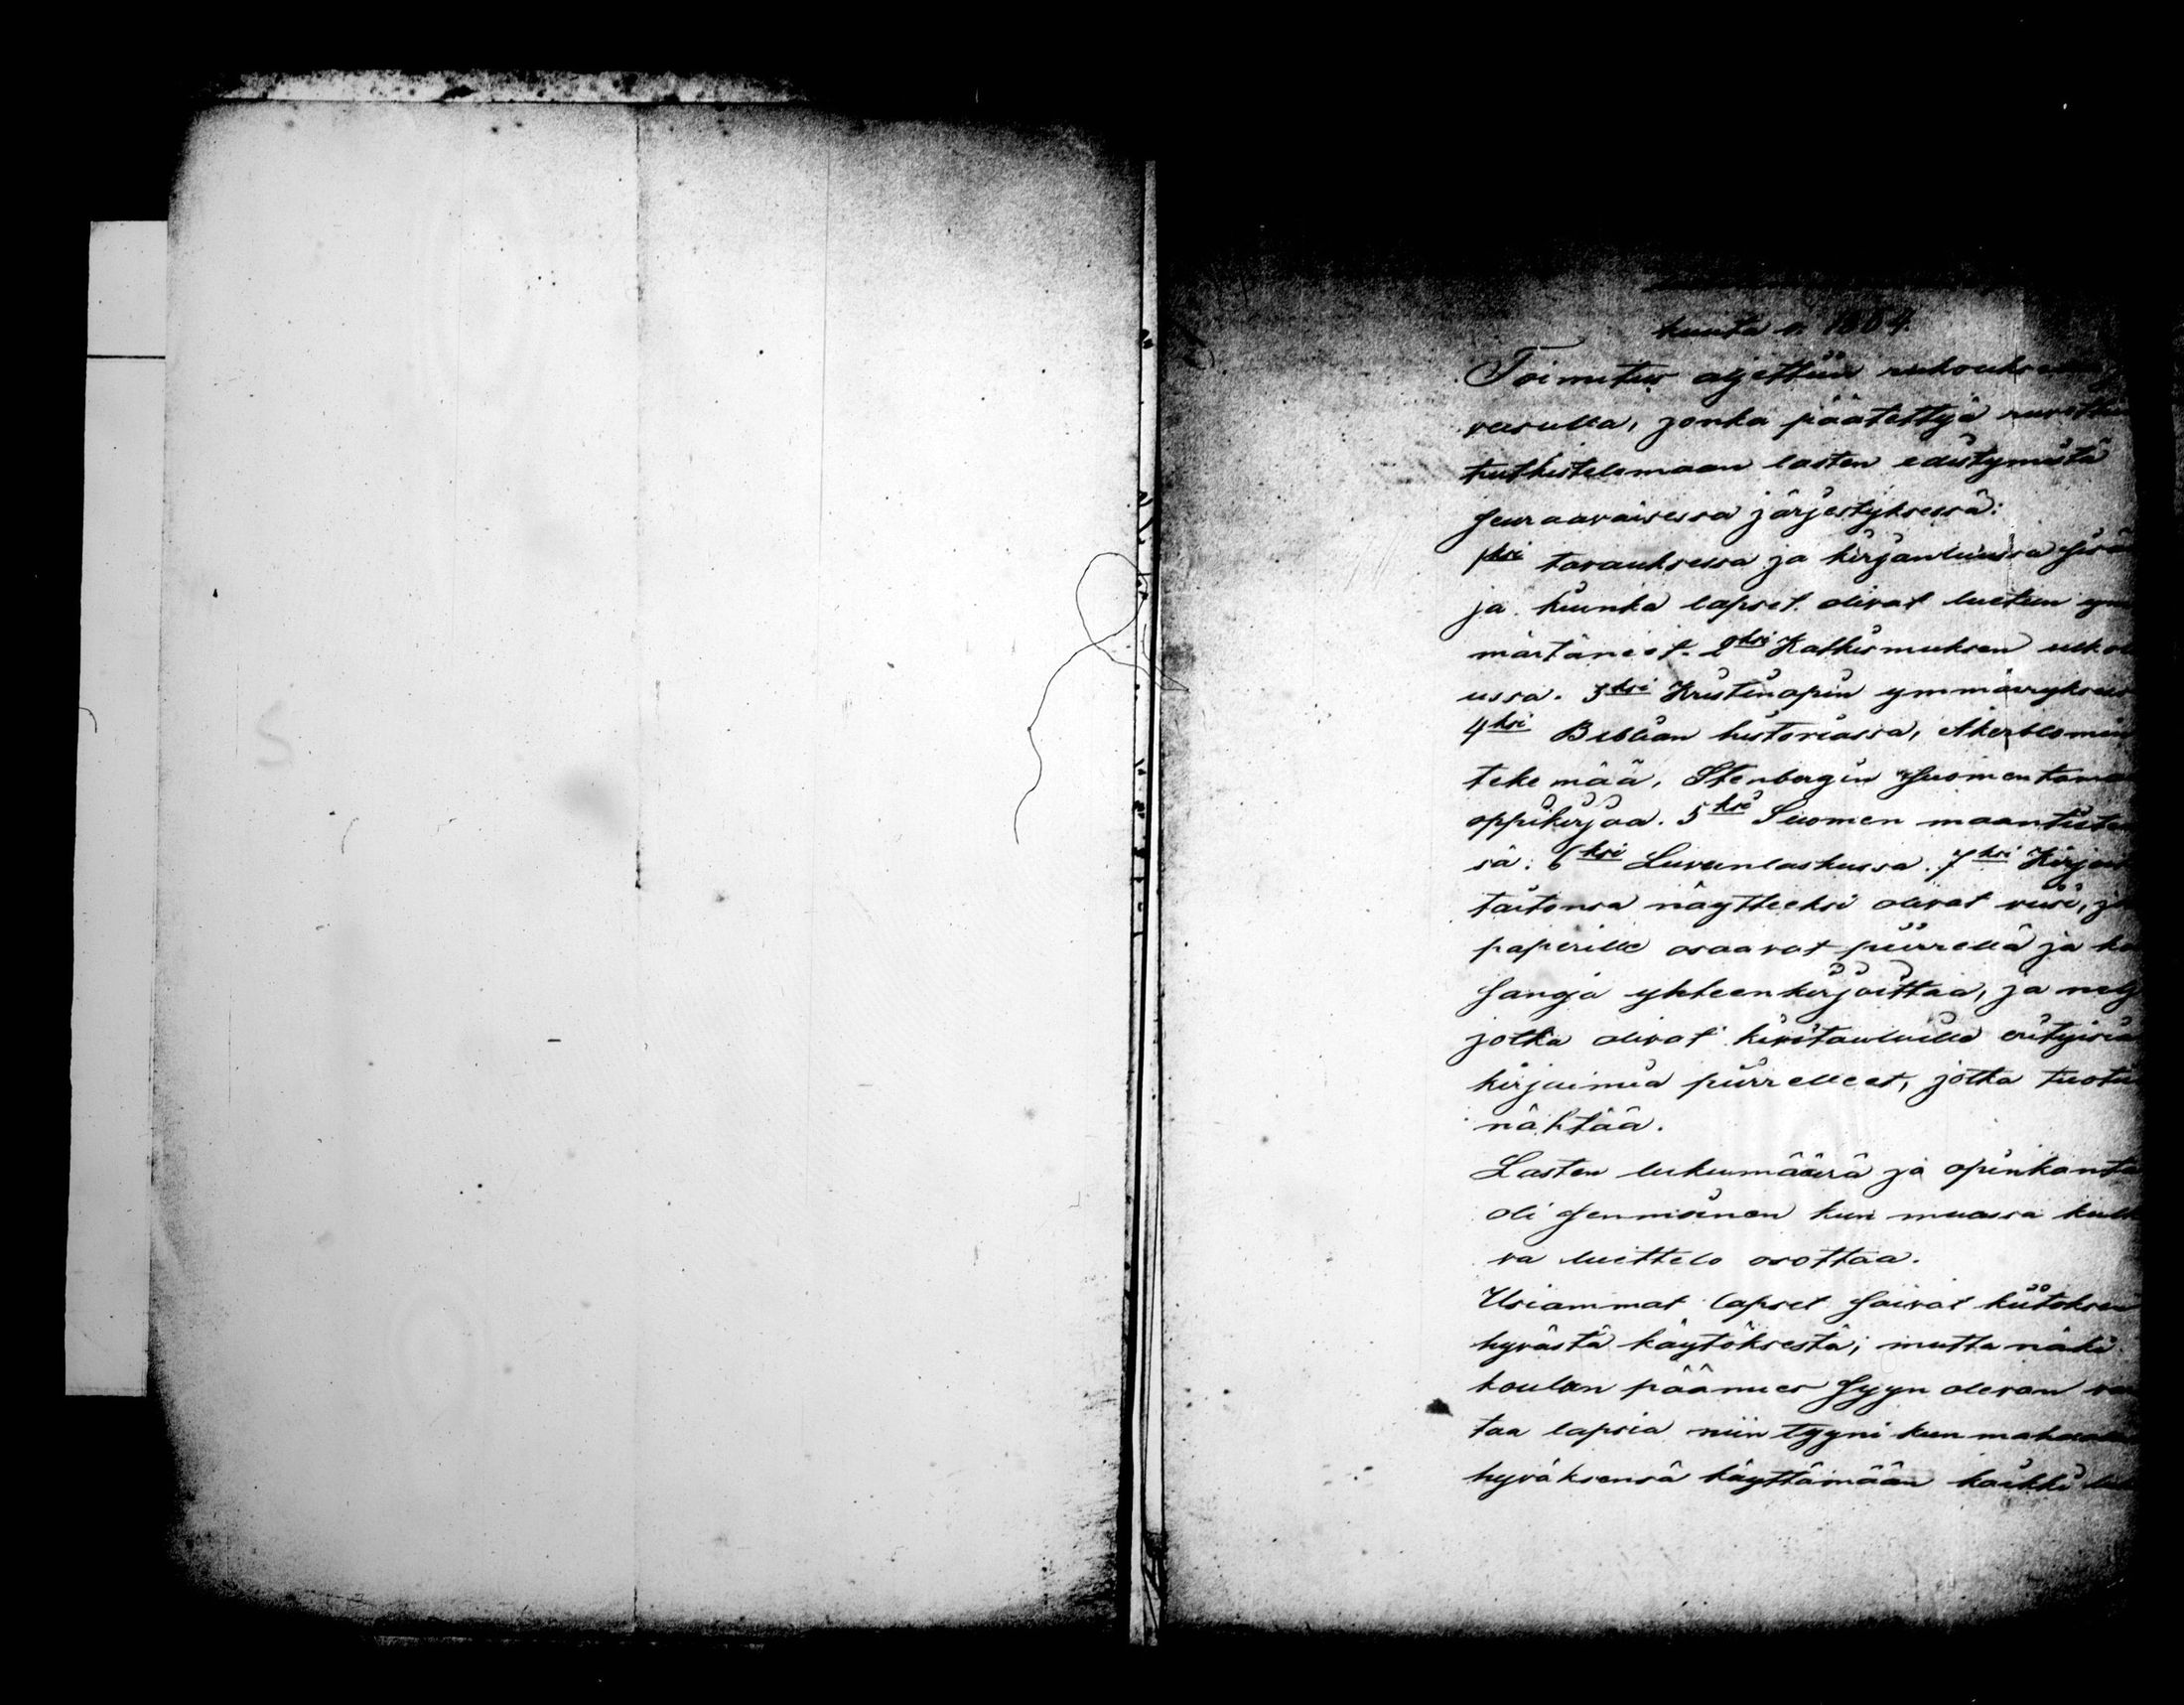 kuuta v. 1864.
Toimitus aljettiin rukouksella
veisulla, jonka päätettyä ruvettiin
tutkistelemaan lasten edistymistä
seuraavaisessa järjestyksessä:
1ksi tavauksessa ja kirjanluussa sisä
ja kuinka lapset olivat luetun ym
märtäneet. 2ksi Katkismuksen ulkol
ussa. 3ksi Kristinopin ymmärrykses
4ksi Biblian historiassa, Åkerblomin
tekemää, Stenbergin suomentama
oppikirjaa. 5ksi Suomen maantietee
sä. 6ksi Luvunlaskussa. 7ksi Kirjoit
taitonsa näytteeksi olivat viisi, jo
paperille osaavat piirrellä ja ko
sanoja yhteenkirjoittaa, ja nelj
jotka olivat kivitauluille erityisiä
kirjaimia piirrelleet, jotka tuotii
nähtää.
Lasten lukumäärä ja opinkanta
oli senmoinen kun muassa kulk
va luettelo osottaa.
Usiammat lapset saivat kiitoksen
hyvästä käytöksestä; mutta näki
koulun päämies syyn olevan va
taa lapsia niin tyyni kun mahdol
hyväksensä käyttämään kaikki